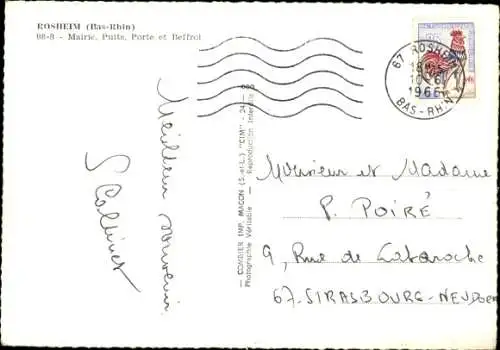 ROSHEIM (Bas-Rhin)
98-8 - Mairie, Puits, Porte et Beffroi
67 ROSHEIM
18H
10-6
1966
BAS-RHIN
Meilleur souvenir
COMBIER IMP. MACON (S.-et-L.) "CIM"
Photographie Véritable - Reproduction Interdite
Monsieur et Madame
P. POIRÉ
9, Rue de
67-STRASBOURG-NEUDORF